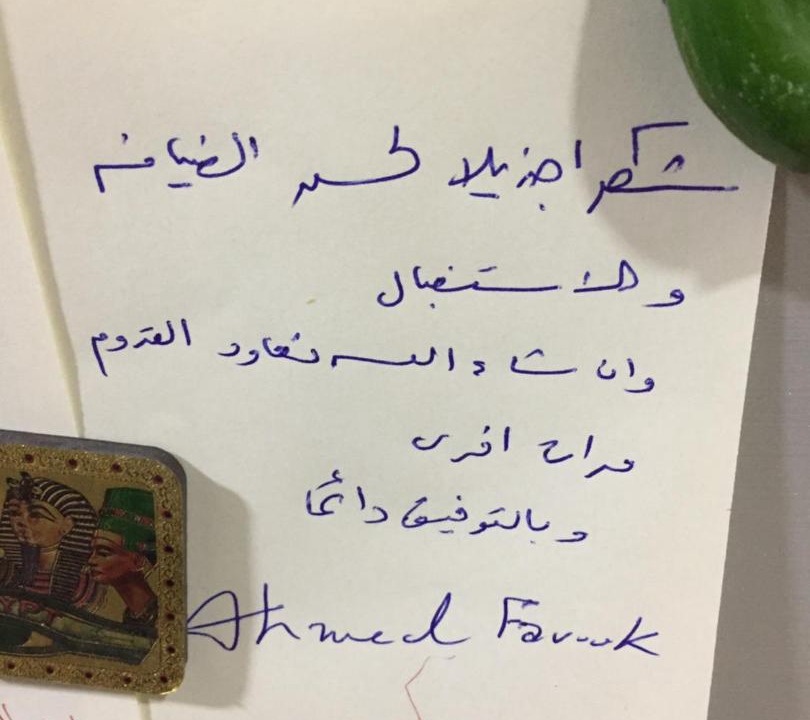 شكرا جزيلا لحسن الضيافه
والاستقبال
وان شاء الله نعاود القدوم
مرات اخرى
وبالتوفيق دائما
Ahmed Farouk
EGYPT